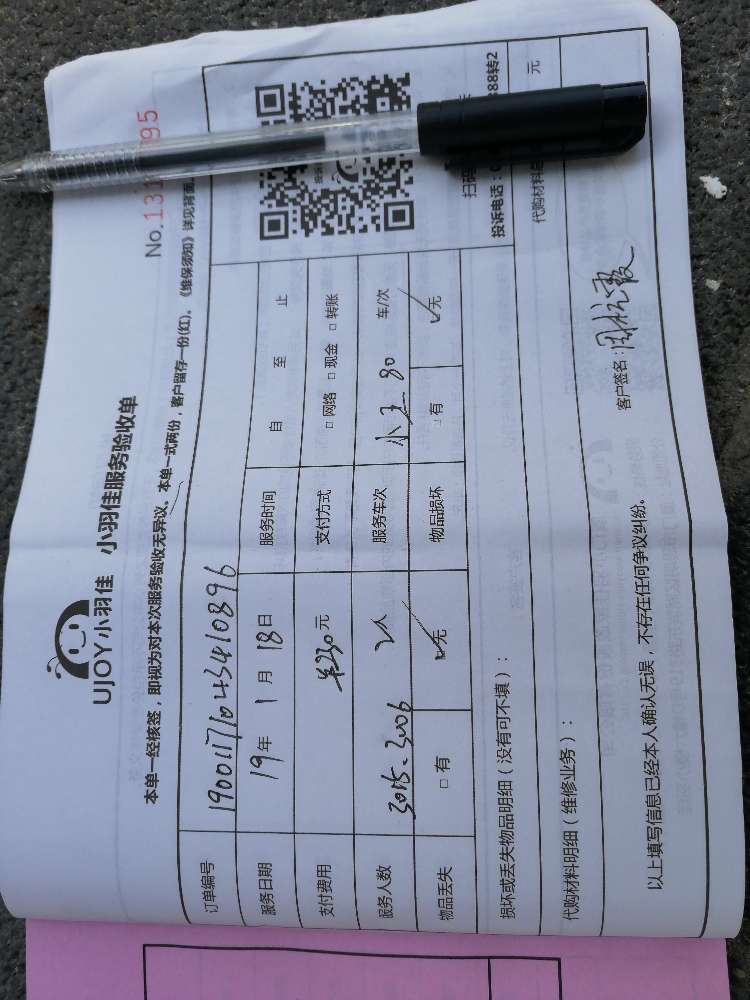 UJOY小羽佳 小羽佳服务验收单
No.131 95
本单一经核签，即视为对本次服务验收无异议。本单一式两份，客户留存一份(红)。《维保须知》详见背面
订单编号 19001171043410896
服务日期 19年 1月 18日 服务时间 自 至 止
支付费用 ¥230元 支付方式 □网络 □现金 □转账
服务人数 3015、3006 2人 服务车次 小王 80 车/次
物品丢失 □有 ☑无 物品损坏 □有 ☑无
扫码
投诉电话：0 888转2
损坏或丢失物品明细（没有可不填）：
代购材料明细（维修业务）： 代购材料 元
以上填写信息已经本人确认无误，不存在任何争议纠纷。 客户签名：